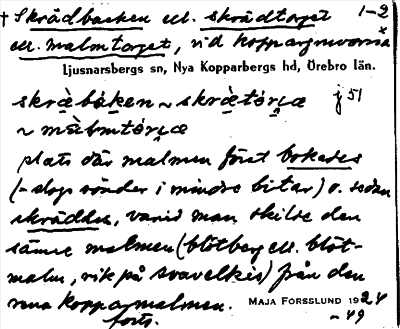 † Skrädbacken ell. skrädtorget 1–2
ell. malmtorget, vid koppargruvorna
Ljusnarsbergs sn, Nya Kopparbergs hd, Örebro län.
plats där malmen först bokades j 51
(= slogs sönder i mindre bitar) o. sedan
skräddes, varvid man skilde den
sämre malmen (blötberg ell. blöt-
malm, rik på svavelkis) från den
rena kopparmalmen. MAJA FORSSLUND 1924
forts. –49